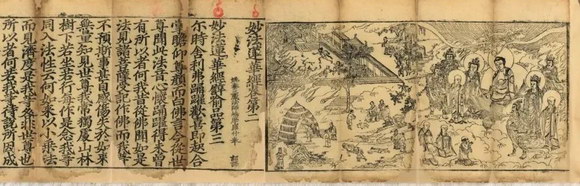 妙法蓮華經卷第二
妙法蓮華經譬喻品第三
尒時舍利弗踊躍歡喜即起合
掌瞻仰尊顏而白佛言今從世
尊聞此法音心懷踊躍得未曾
有所以者何我昔從佛聞如是
法見諸菩薩受記作佛而我等
不預斯事甚自感傷失於如來
無量知見世尊我常獨處山林
樹下若坐若行每作是念我等
同入法性云何如來以小乘法
而見濟度是我等咎非世尊也
所以者何若我等待說所因成